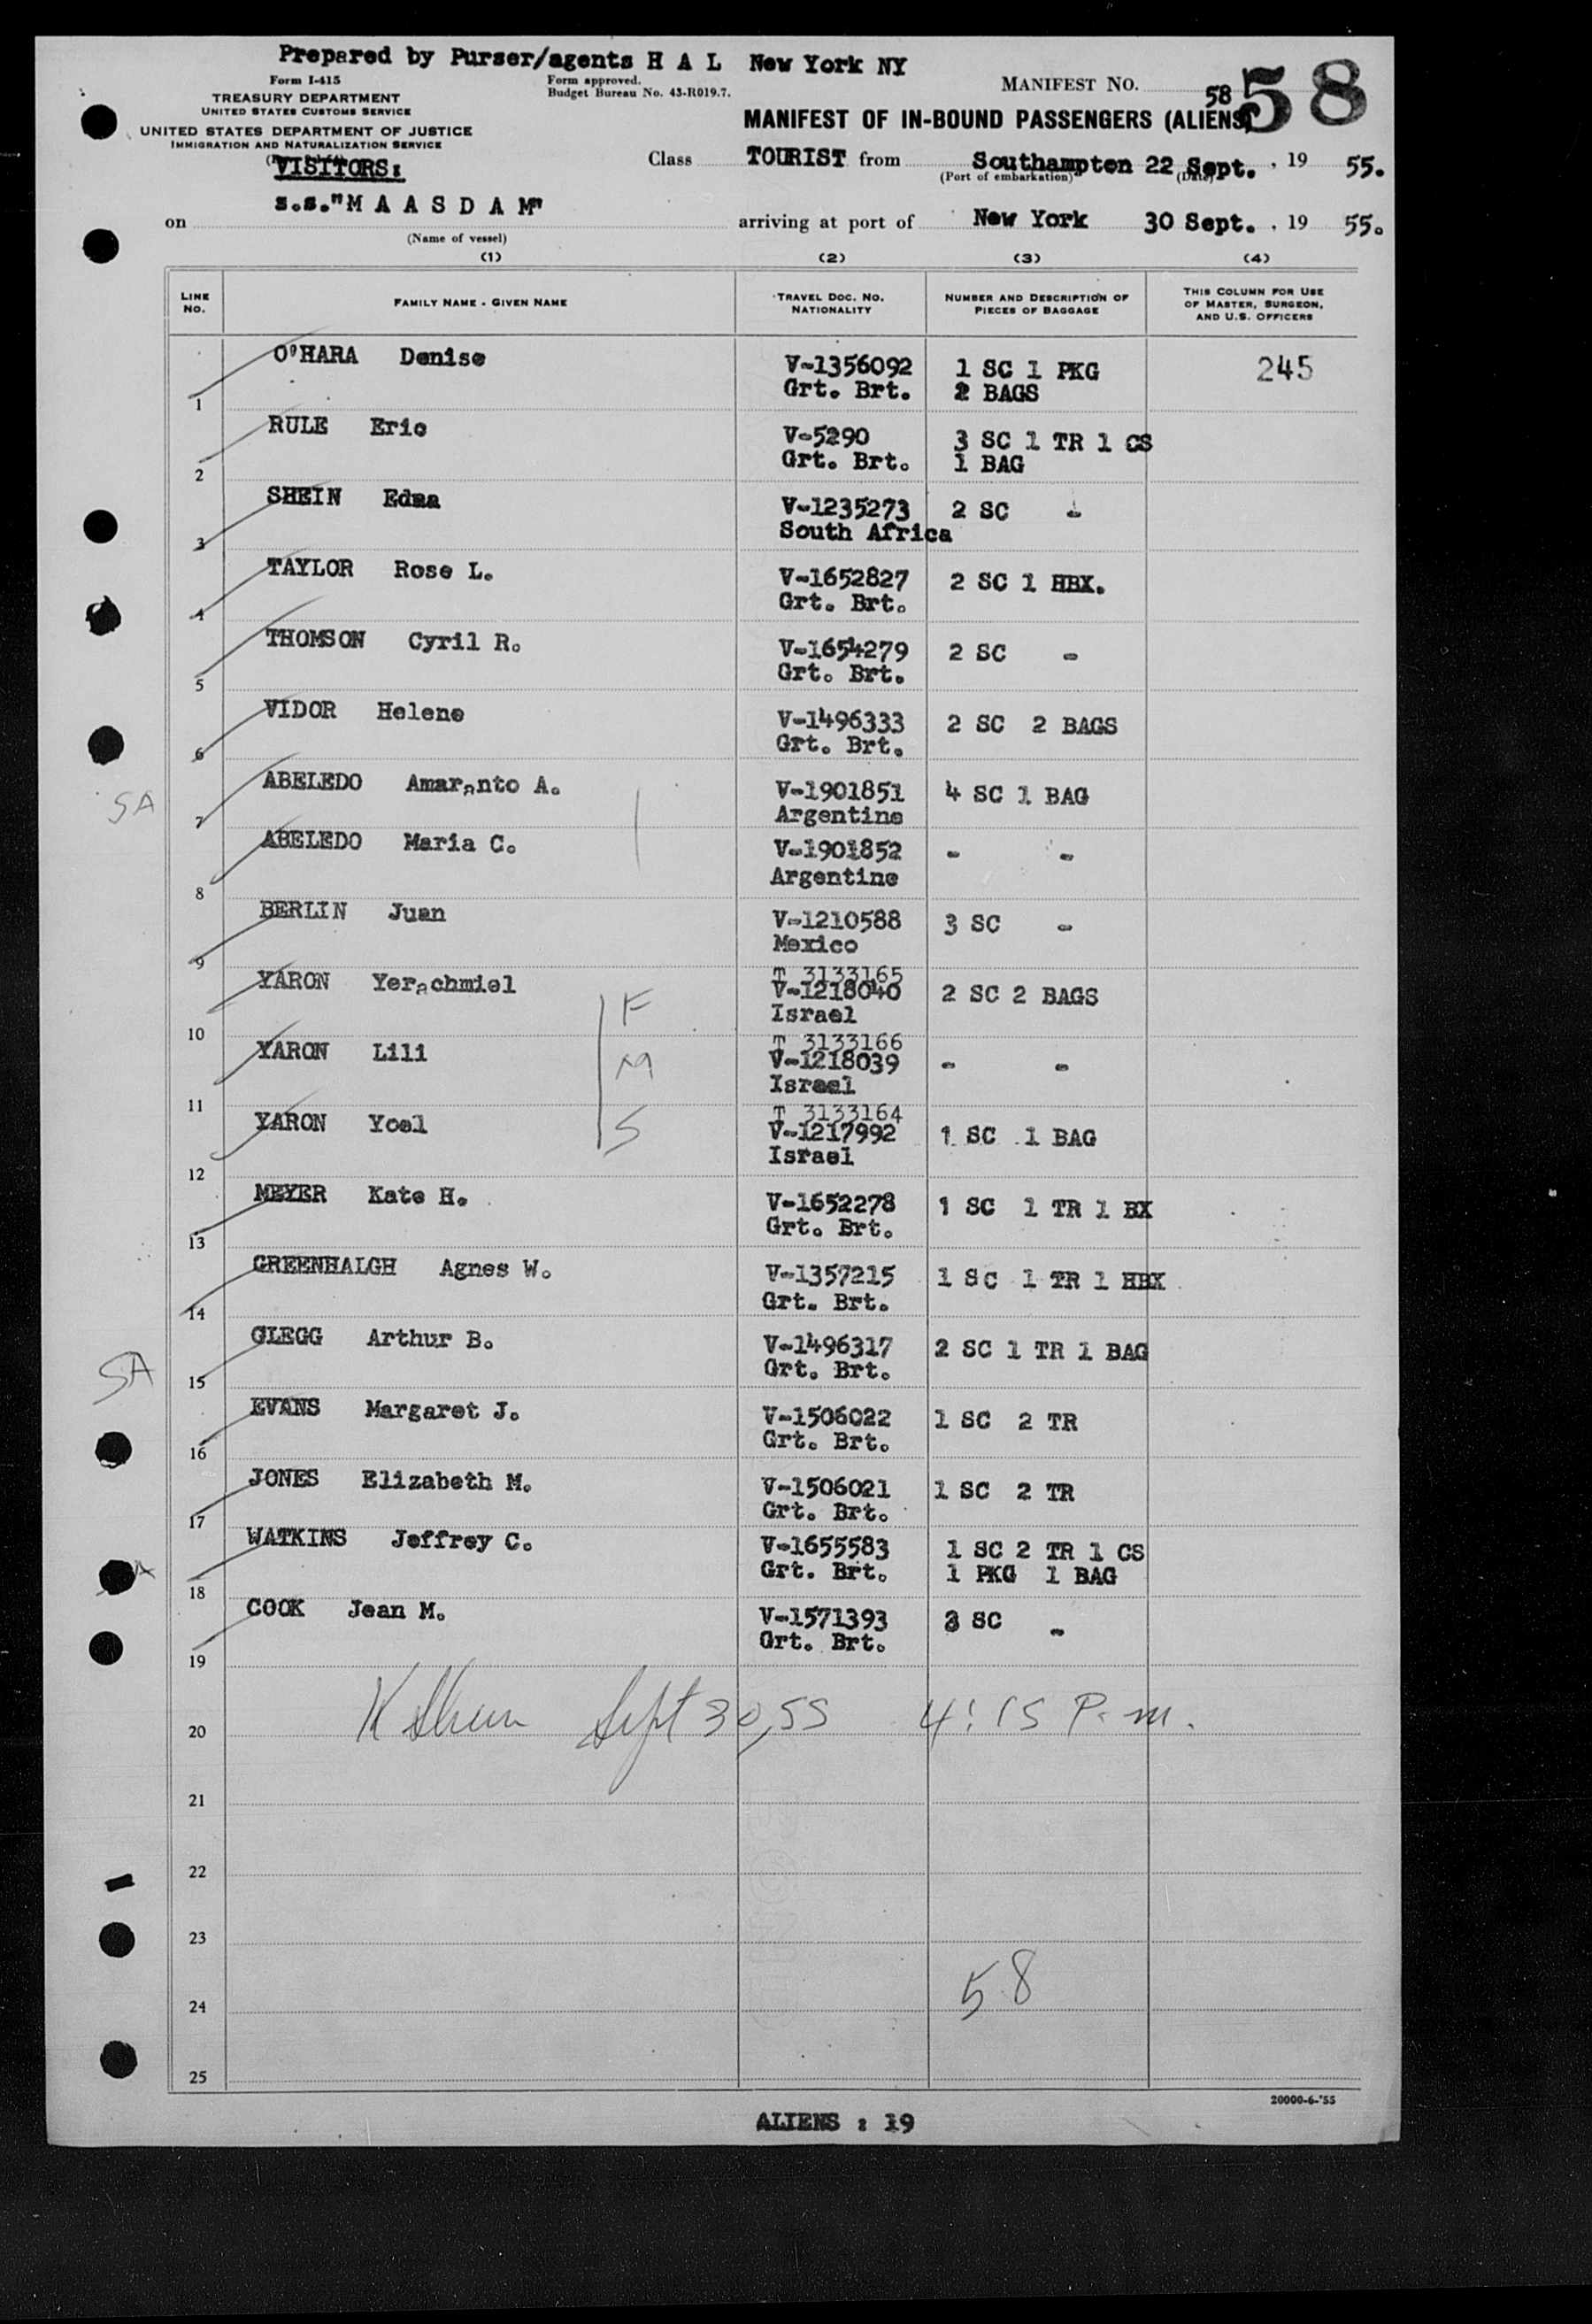 Prepared by Purser/agents H A L New York NY
Form I-415
TREASURY DEPARTMENT
UNITED STATES CUSTOMS SERVICE
UNITED STATES DEPARTMENT OF JUSTICE
IMMIGRATION AND NATURALIZATION SERVICE
Form approved.
Budget Bureau No. 43-R019.7.
MANIFEST NO. 58
58
MANIFEST OF IN-BOUND PASSENGERS (ALIENS)
VISITORS:
Class TOURIST from Southampton 22 Sept. , 19 55.
(Port of embarkation) (Date)
on s.s."M A A S D A M" arriving at port of New York 30 Sept. , 19 55.
(Name of vessel)
(1) (2) (3) (4)
LINE NO. FAMILY NAME - GIVEN NAME TRAVEL DOC. NO. NATIONALITY NUMBER AND DESCRIPTION OF PIECES OF BAGGAGE THIS COLUMN FOR USE OF MASTER, SURGEON, AND U.S. OFFICERS
1 O'HARA Denise V-1356092 1 SC 1 PKG 245
Grt. Brt. 2 BAGS
2 RULE Eric V-5290 3 SC 1 TR 1 CS
Grt. Brt. 1 BAG
3 SHEIN Edna V-1235273 2 SC -
South Africa
4 TAYLOR Rose L. V-1652827 2 SC 1 HBX.
Grt. Brt.
5 THOMSON Cyril R. V-1654279 2 SC -
Grt. Brt.
6 VIDOR Helene V-1496333 2 SC 2 BAGS
Grt. Brt.
SA 7 ABELEDO Amaranto A. V-1901851 4 SC 1 BAG
Argentine
8 ABELEDO Maria C. V-1901852 - -
Argentine
9 BERLIN Juan V-1210588 3 SC -
Mexico
T 3133165
10 YARON Yerachmiel F V-1218040 2 SC 2 BAGS
Israel
T 3133166
11 YARON Lili M V-1218039 - -
Israel
T 3133164
12 YARON Yoel S V-1217992 1 SC 1 BAG
Israel
13 MEYER Kate H. V-1652278 1 SC 1 TR 1 BX
Grt. Brt.
14 GREENHALGH Agnes W. V-1357215 1 SC 1 TR 1 HBX
Grt. Brt.
SA 15 CLEGG Arthur B. V-1496317 2 SC 1 TR 1 BAG
Grt. Brt.
16 EVANS Margaret J. V-1506022 1 SC 2 TR
Grt. Brt.
17 JONES Elizabeth M. V-1506021 1 SC 2 TR
Grt. Brt.
18 WATKINS Jeffrey C. V-1655583 1 SC 2 TR 1 CS
Grt. Brt. 1 PKG 1 BAG
19 COOK Jean M. V-1571393 3 SC -
Grt. Brt.
20 Sept 30, 55 4:15 P.m.
21
22
23
24 58
25
20000-6-'55
ALIENS : 19